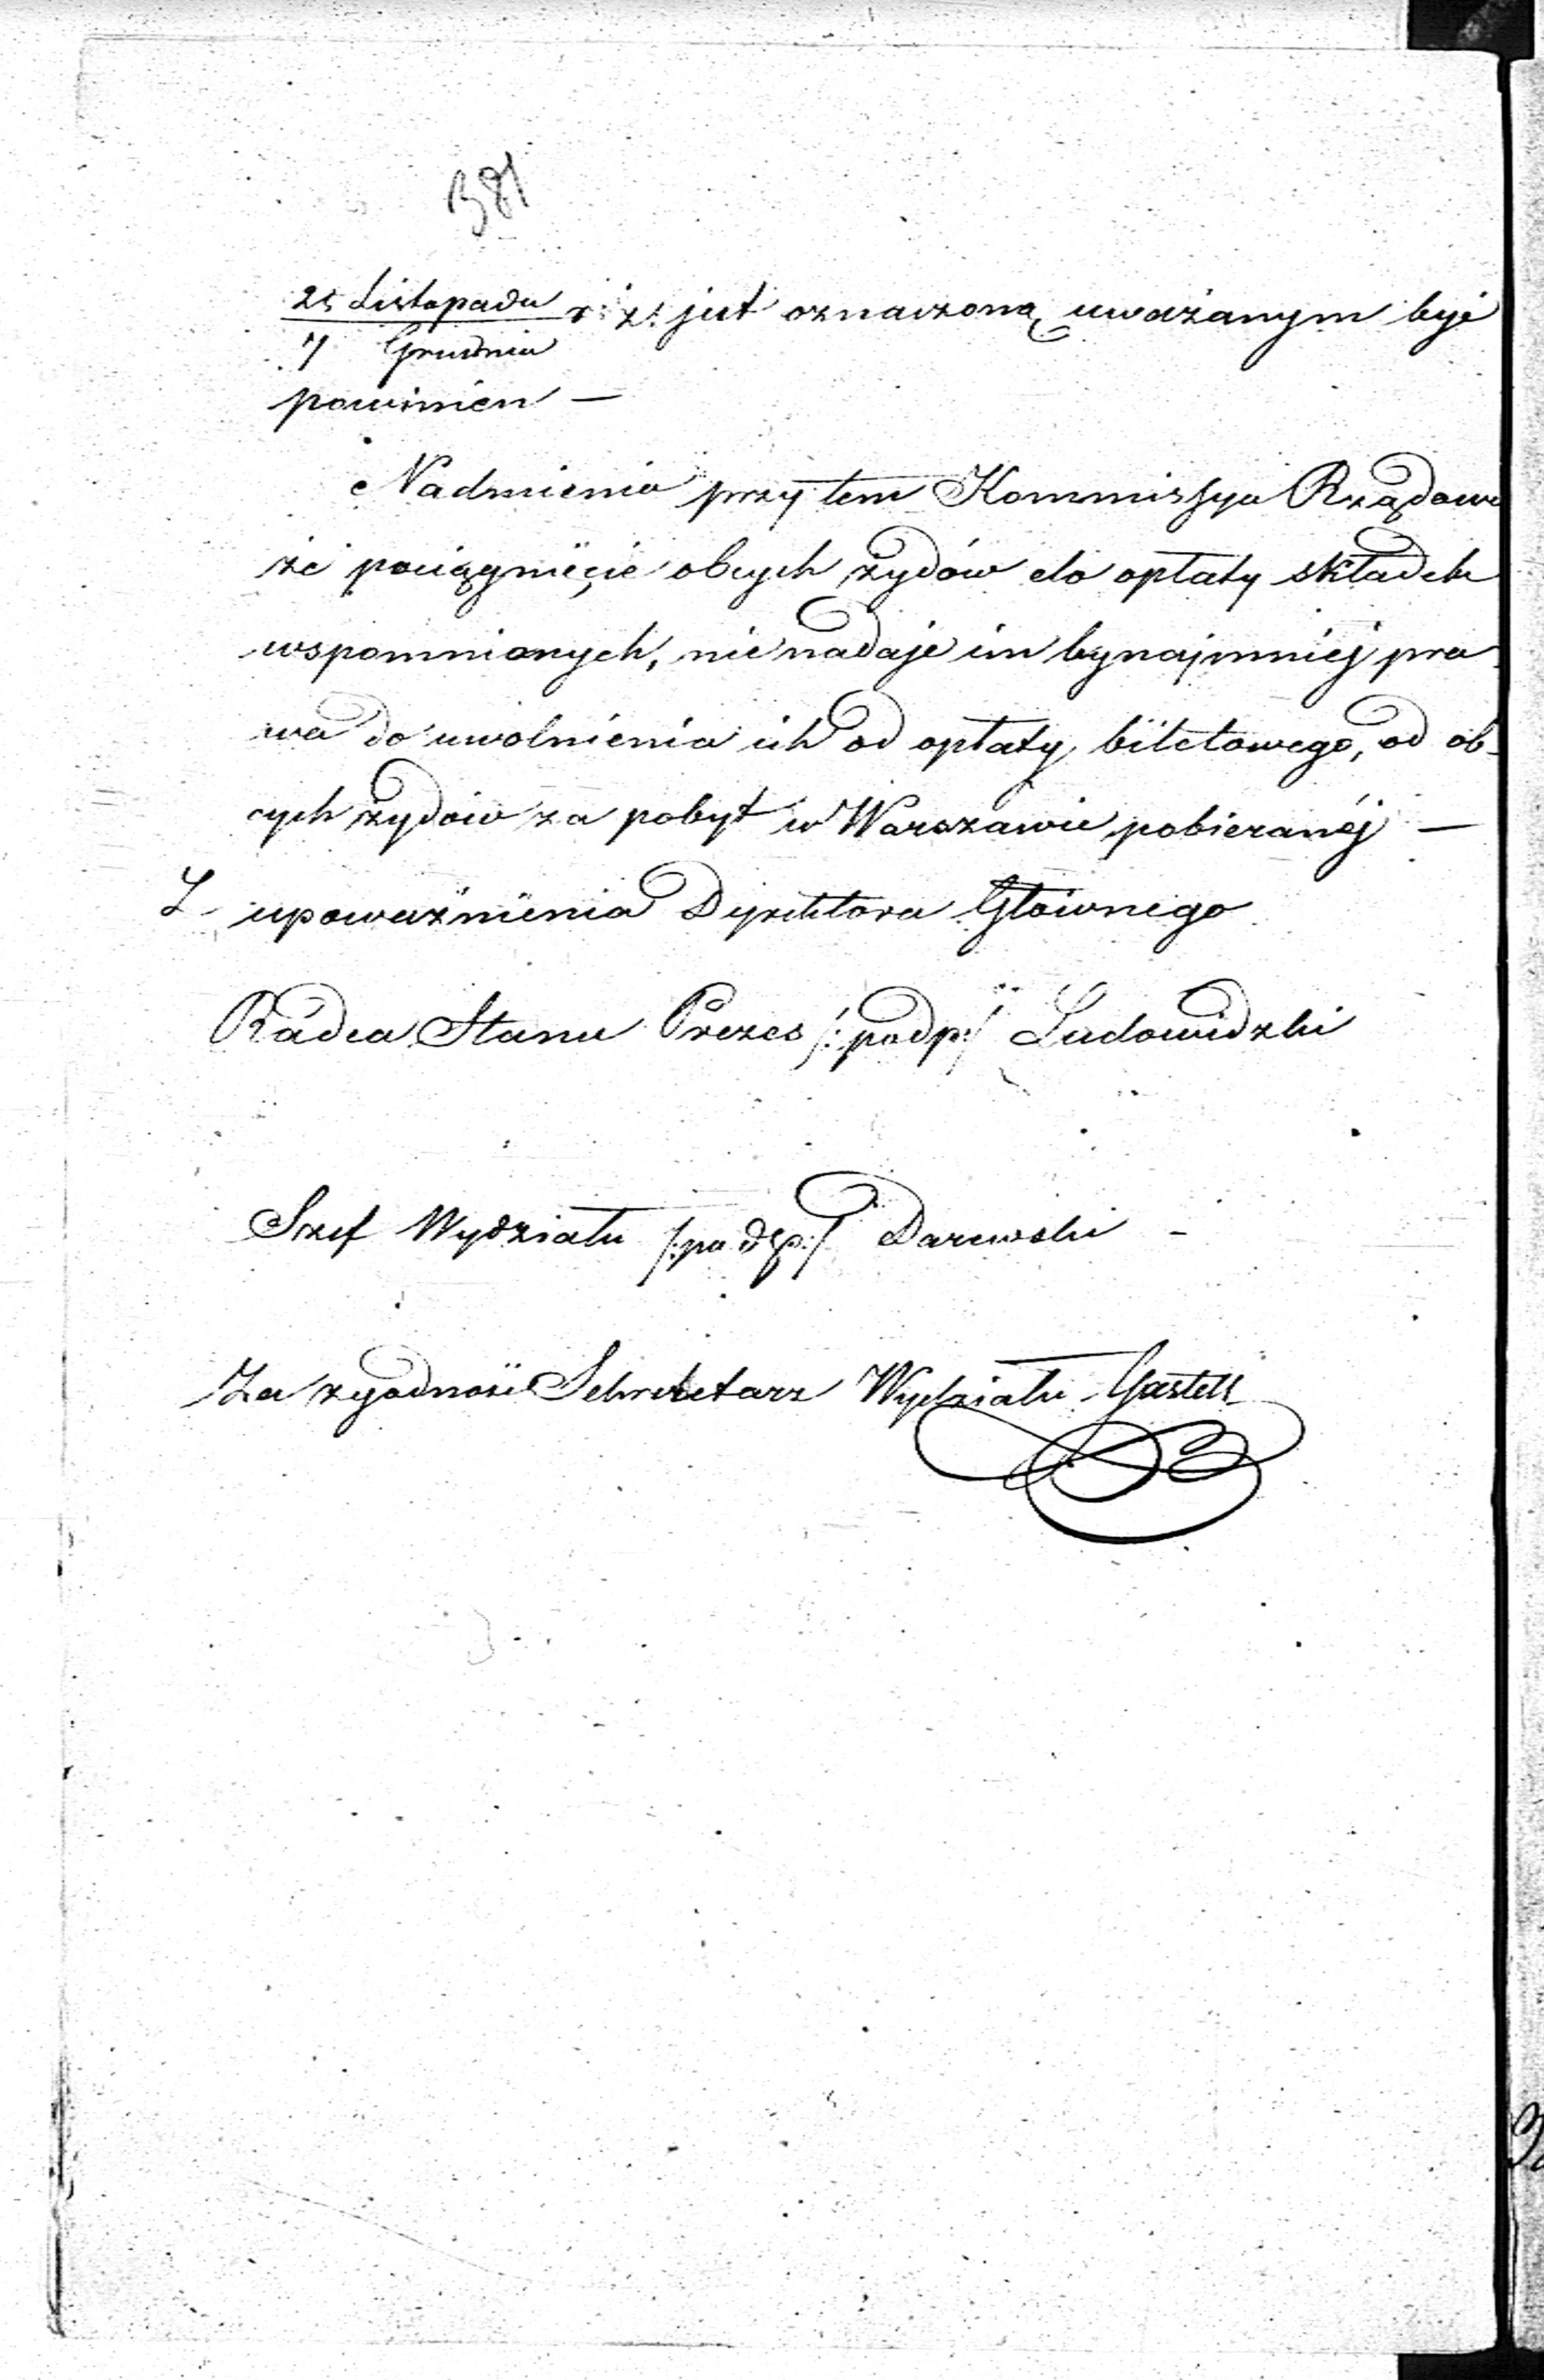 25 Listopada r: z: jest oznaczoną uważanym być
7 Grudnia
powinien —
Nadmienia przytem Kommissya Rządowa
że pociągnięcie obcych żydów do opłaty składek
wspomnionych, nie nadaje im bynajmniéj pra
wa do uwolnienia ich od opłaty biletowego, od ob-
cych żydów za pobyt w Warszawie pobieranéj —
Z upoważnienia Dyrektora Głównego
Radca Stanu Prezes /:podp:/
Szef Wydziału /:podp:/ Darewski -
Za zgodność Sekretarz Wydziału